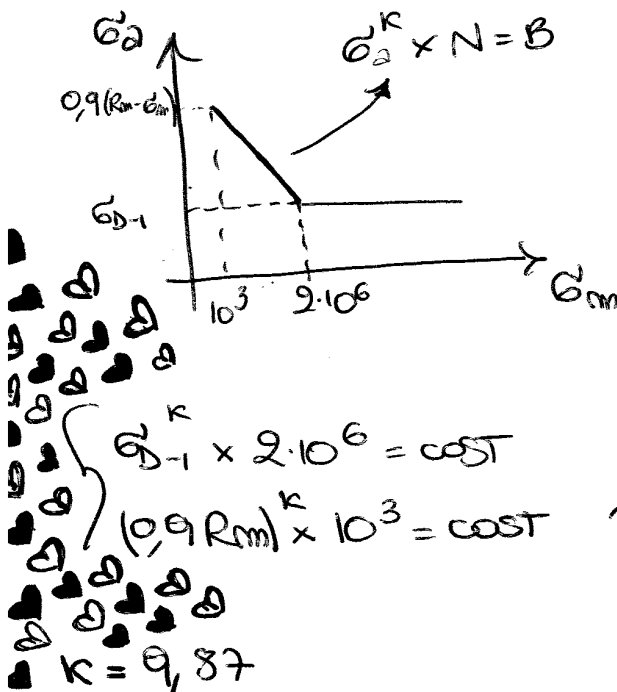 σa
σa^K × N = B
0,9(Rm-σm)
σD-1
10^3 2·10^6
σm
σD-1^K × 2·10^6 = COST
(0,9 Rm)^K × 10^3 = COST
K = 9,87